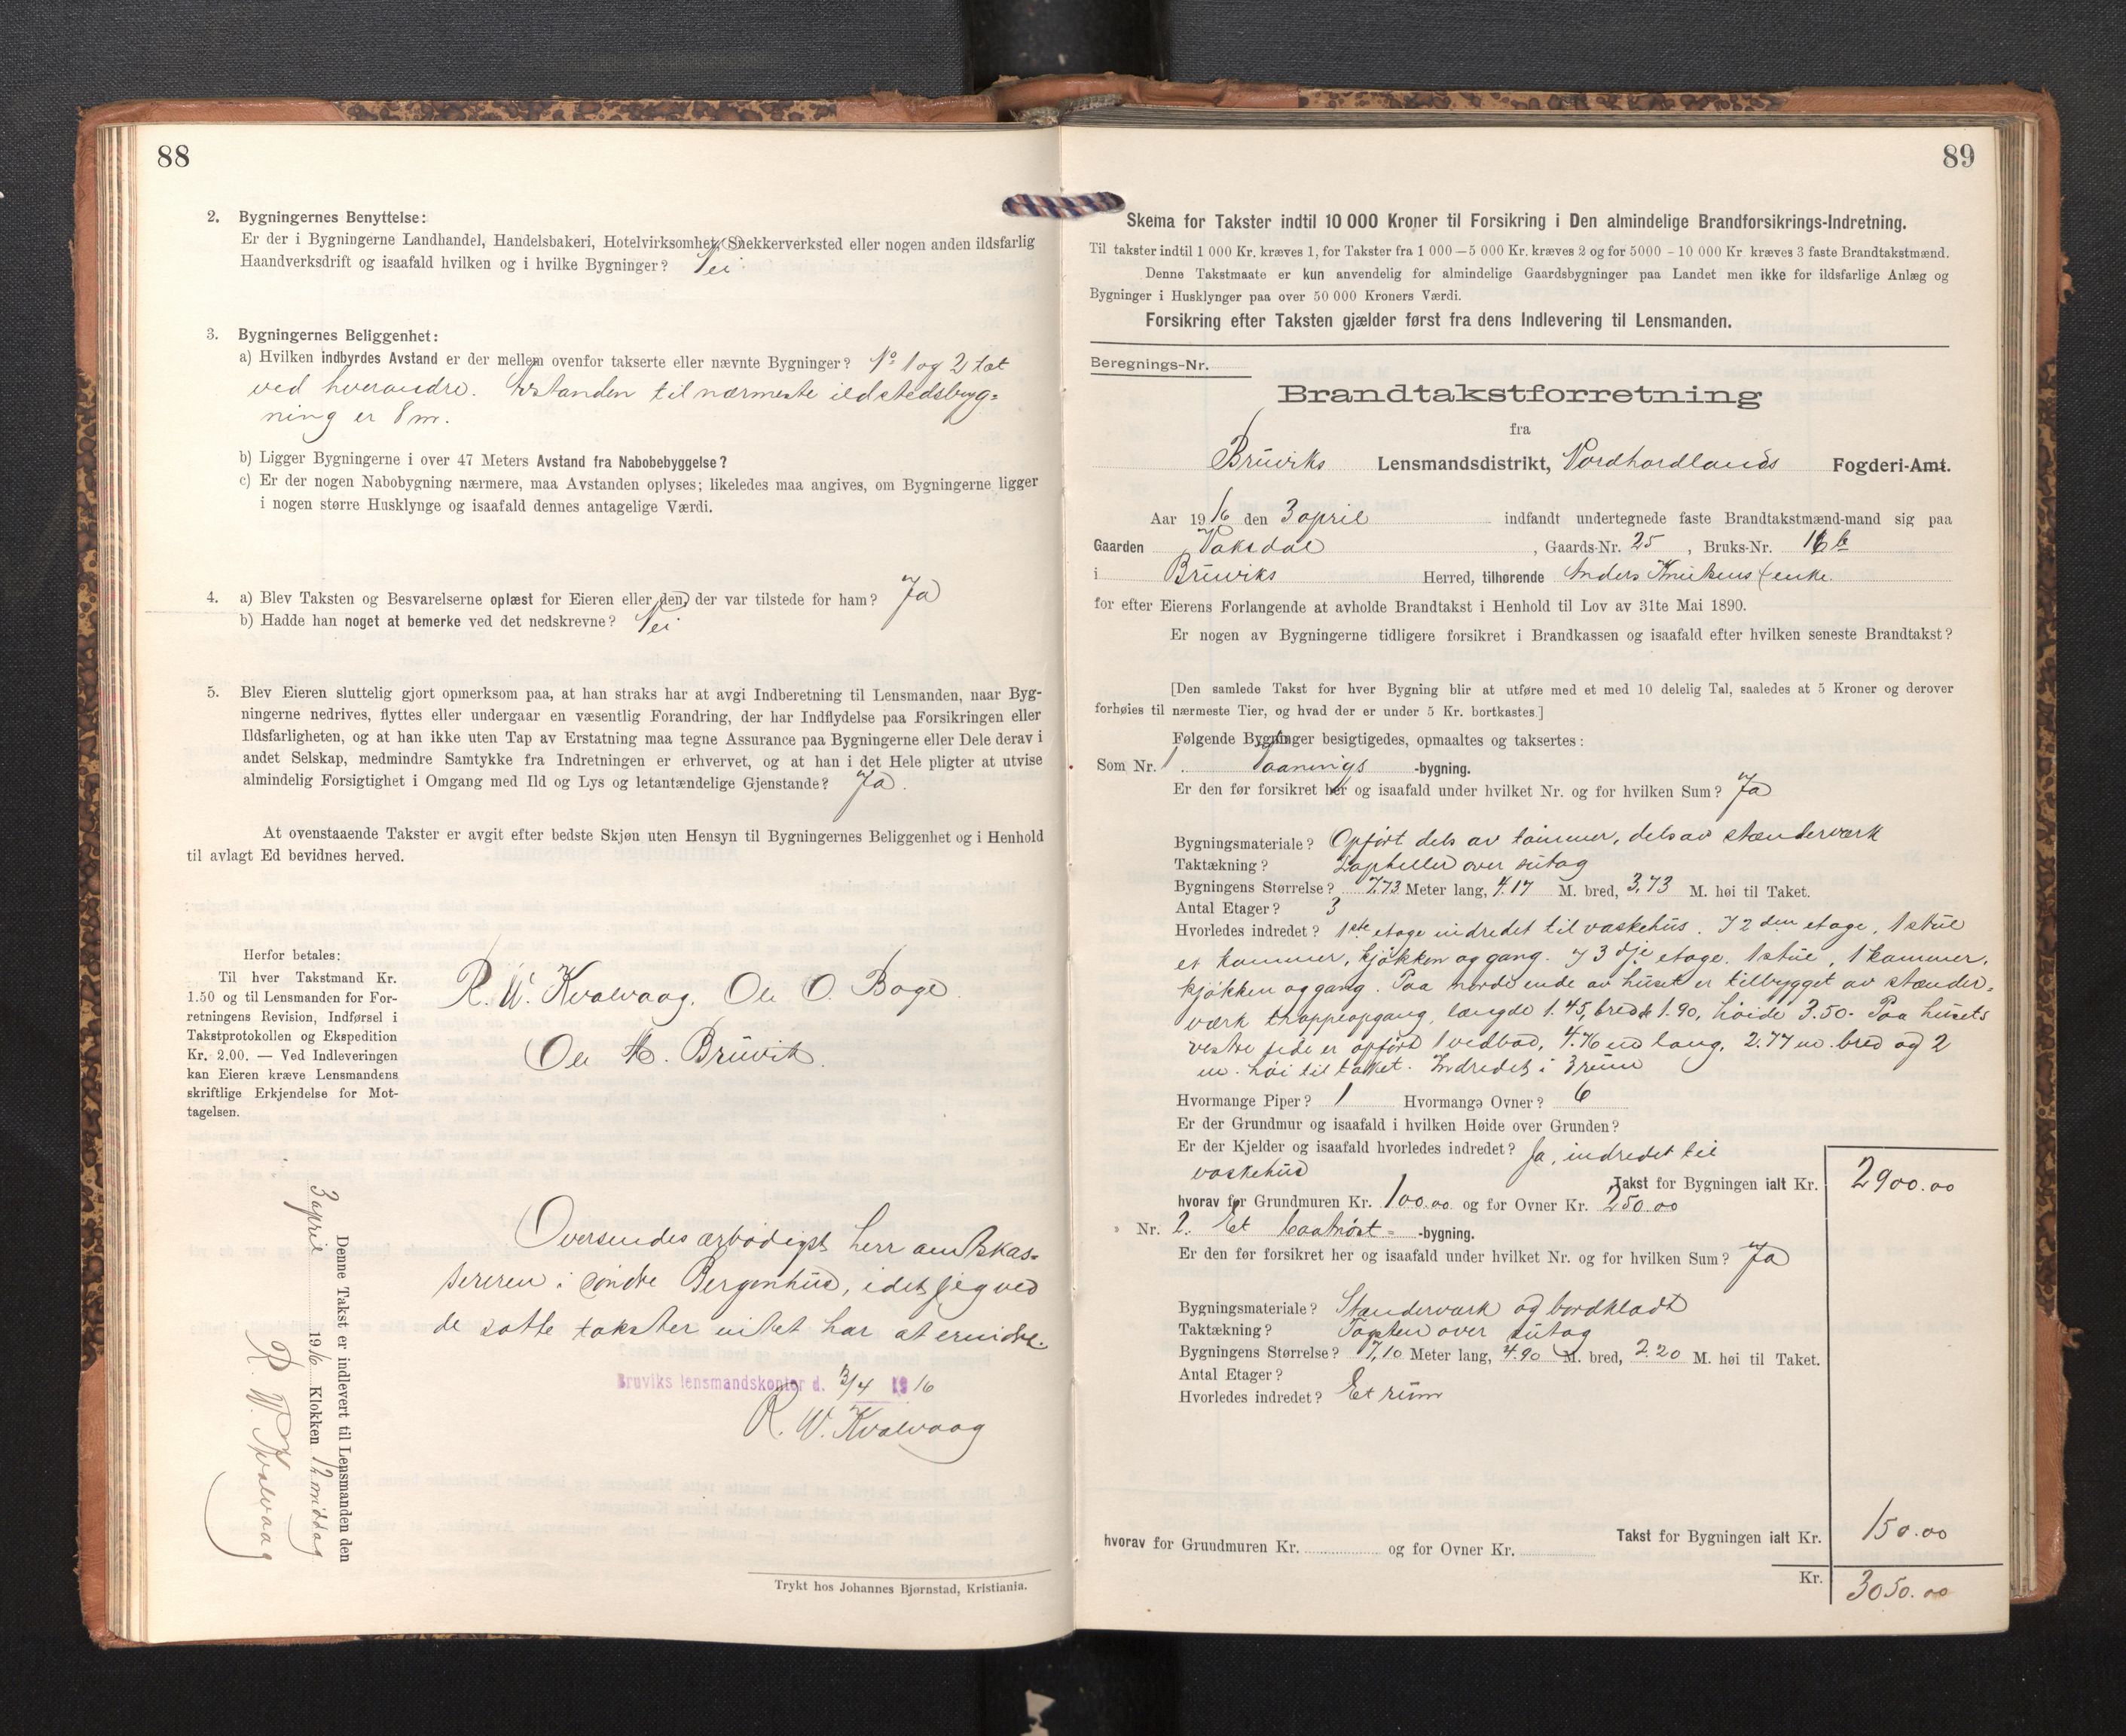 88
2. Bygningernes Benyttelse:
Er der i Bygningerne Landhandel, Handelsbakeri, Hotelvirksomhet, Snekkerverksted eller nogen anden ildsfarlig
Haandverksdrift og isaafald hvilken og i hvilke Bygninger? Nei
3. Bygningernes Beliggenhet:
a) Hvilken indbyrdes Avstand er der mellem ovenfor takserte eller nævnte Bygninger? No 1 og 2 tæt
ved hverandre. Avstanden til nærmeste ildstedsbyg=
ning er 8 m.
b) Ligger Bygningerne i over 47 Meters Avstand fra Nabobebyggelse?
c) Er der nogen Nabobygning nærmere, maa Avstanden oplyses; likeledes maa angives, om Bygningerne ligger
i nogen større Husklynge og isaafald dennes antagelige Værdi.
4. a) Blev Taksten og Besvarelserne oplæst for Eieren eller den, der var tilstede for ham? Ja
b) Hadde han noget at bemerke ved det nedskrevne? Nei
5. Blev Eieren sluttelig gjort opmerksom paa, at han straks har at avgi Indberetning til Lensmanden, naar Byg-
ningerne nedrives, flyttes eller undergaar en væsentlig Forandring, der har Indflydelse paa Forsikringen eller
Ildsfarligheten, og at han ikke uten Tap av Erstatning maa tegne Assurance paa Bygningerne eller Dele derav i
andet Selskap, medmindre Samtykke fra Indretningen er erhvervet, og at han i det Hele pligter at utvise
almindelig Forsigtighet i Omgang med Ild og Lys og letantændelige Gjenstande? Ja.
At ovenstaaende Takster er avgit efter bedste Skjøn uten Hensyn til Bygningernes Beliggenhet og i Henhold
til avlagt Ed bevidnes herved.
Herfor betales:
Til hver Takstmand Kr.
1.50 og til Lensmanden for For-
retningens Revision, Indførsel i
Takstprotokollen og Ekspedition
Kr. 2.00. — Ved Indleveringen
kan Eieren kræve Lensmandens
skriftlige Erkjendelse for Mot-
tagelsen.
R. W. Kvalvaag. Ole O. Boge.
Ole M. Bruvik.
Denne Takst er indlevert til Lensmanden den
3 april 1916 Klokken 12 middag
R. W. Kvalvaag
Oversendes ærbødigst herr amtskas=
sereren i søndre Bergenhus, idet jeg ved
de satte takster intet har at erindre.
Bruviks lensmandskontor d. 3/4 1916
R. W. Kvalvaag
Trykt hos Johannes Bjørnstad, Kristiania.
89
Skema for Takster indtil 10 000 Kroner til Forsikring i Den almindelige Brandforsikrings-Indretning.
Til takster indtil 1 000 Kr. kræves 1, for Takster fra 1 000 — 5 000 Kr. kræves 2 og for 5000 - 10 000 Kr kræves 3 faste Brandtakstmænd.
Denne Takstmaate er kun anvendelig for almindelige Gaardsbygninger paa Landet men ikke for ildsfarlige Anlæg og
Bygninger i Husklynger paa over 50 000 Kroners Værdi.
Forsikring efter Taksten gjælder først fra dens Indlevering til Lensmanden.
Beregnings-Nr.
Brandtakstforretning
fra
Bruviks Lensmandsdistrikt, Nordhordlands Fogderi-Amt.
Aar 1916 den 3 april indfandt undertegnede faste Brandtakstmænd-mand sig paa
Gaarden Vaksdal, Gaards-Nr. 25, Bruks-Nr. 16 b
i Bruviks Herred, tilhørende Anders Knutsens enke.
for efter Eierens Forlangende at avholde Brandtakst i Henhold til Lov av 31te Mai 1890.
Er nogen av Bygningerne tidligere forsikret i Brandkassen og isaafald efter hvilken seneste Brandtakst?
[Den samlede Takst for hver Bygning blir at utføre med et med 10 delelig Tal, saaledes at 5 Kroner og derover
forhøies til nærmeste Tier, og hvad der er under 5 Kr. bortkastes.]
Følgende Bygninger besigtigedes, opmaaltes og taksertes:
Som Nr. 1 Vaanings -bygning.
Er den før forsikret her og isaafald under hvilket Nr. og for hvilken Sum? Ja
Bygningsmateriale? Opført dels av tømmer, dels av stænderværk
Taktækning? Lapheller over sutag
Bygningens Størrelse? 7.73 Meter lang, 4.17 M. bred, 3.73 M. høi til Taket.
Antal Etager? 3
Hvorledes indredet? 1ste etage indredet til vaskehus. I 2den etage, 1 stue
et kammer, kjøkken og gang. I 3dje etage. 1 stue, 1 kammer,
kjøkken og gang. Paa nordre ende av huset er tilbygget av stænder=
værk trappeopgang, længde 1.45, bredde 1.90, høide 3.50. Paa husets
vestre side er opført 1 vedbod, 4.76 m lang, 2.77 m. bred og 2
m. høi til taket. Indredet i 3 rum
Hvormange Piper? 1 Hvormange Ovner? 6
Er der Grundmur og isaafald i hvilken Høide over Grunden?
Er der Kjelder og isaafald hvorledes indredet? Ja, indredet til
vaskehus
Takst for Bygningen ialt Kr. 2900.00
hvorav for Grundmuren Kr. 100.00 og for Ovner Kr. 250.00
» Nr. 2. Et baatnøst= -bygning.
Er den før forsikret her og isaafald under hvilket Nr. og for hvilken Sum? Ja
Bygningsmateriale? Stænderværk og bordklædt
Taktækning? Tagsten over sutag
Bygningens Størrelse? 7,10 Meter lang, 4.90 M. bred, 2.20 M. høi til Taket.
Antal Etager?
Hvorledes indredet? Et rum
Takst for Bygningen ialt Kr. 150.00
hvorav for Grundmuren Kr. og for Ovner Kr.
Kr. 3050.00